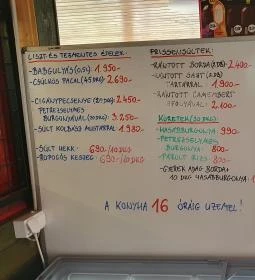 LISZT ÉS TEJMENTES ÉTELEK:
-BABGULYÁS (0,5L): 1.950-
-CSÜLKÖS PACAL (45 DKG): 2.690-
-CIGÁNYPECSENYE (20 DKG) 2.450-
PETREZSELYMES
BURGONYÁVAL (40 DKG): 3.250-
-SÜLT KOLBÁSZ MUSTÁRRAL 1.980-
-SÜLT HEKK: 690/10 DKG
-ROPOGÓS KESZEG: 690/10 DKG
FRISSENSÜLTEK:
-RÁNTOTT BORDA (2 DB) 2.400-
-RÁNTOTT SAJT (2 DB)
TARTÁRRAL 1.900-
-RÁNTOTT CAMEMBERT
ÁFONYÁVAL: 2.100-
KÖRETEK (30 DKG):
-HASÁBBURGONYA: 990-
-PETREZSELYMES
BURGONYA: 800-
-PÁROLT RIZS: 800-
-GYEREK ADAG BORDA+
10 DKG HASÁBBURGONYA:
A KONYHA 16 ÓRÁIG ÜZEMEL!